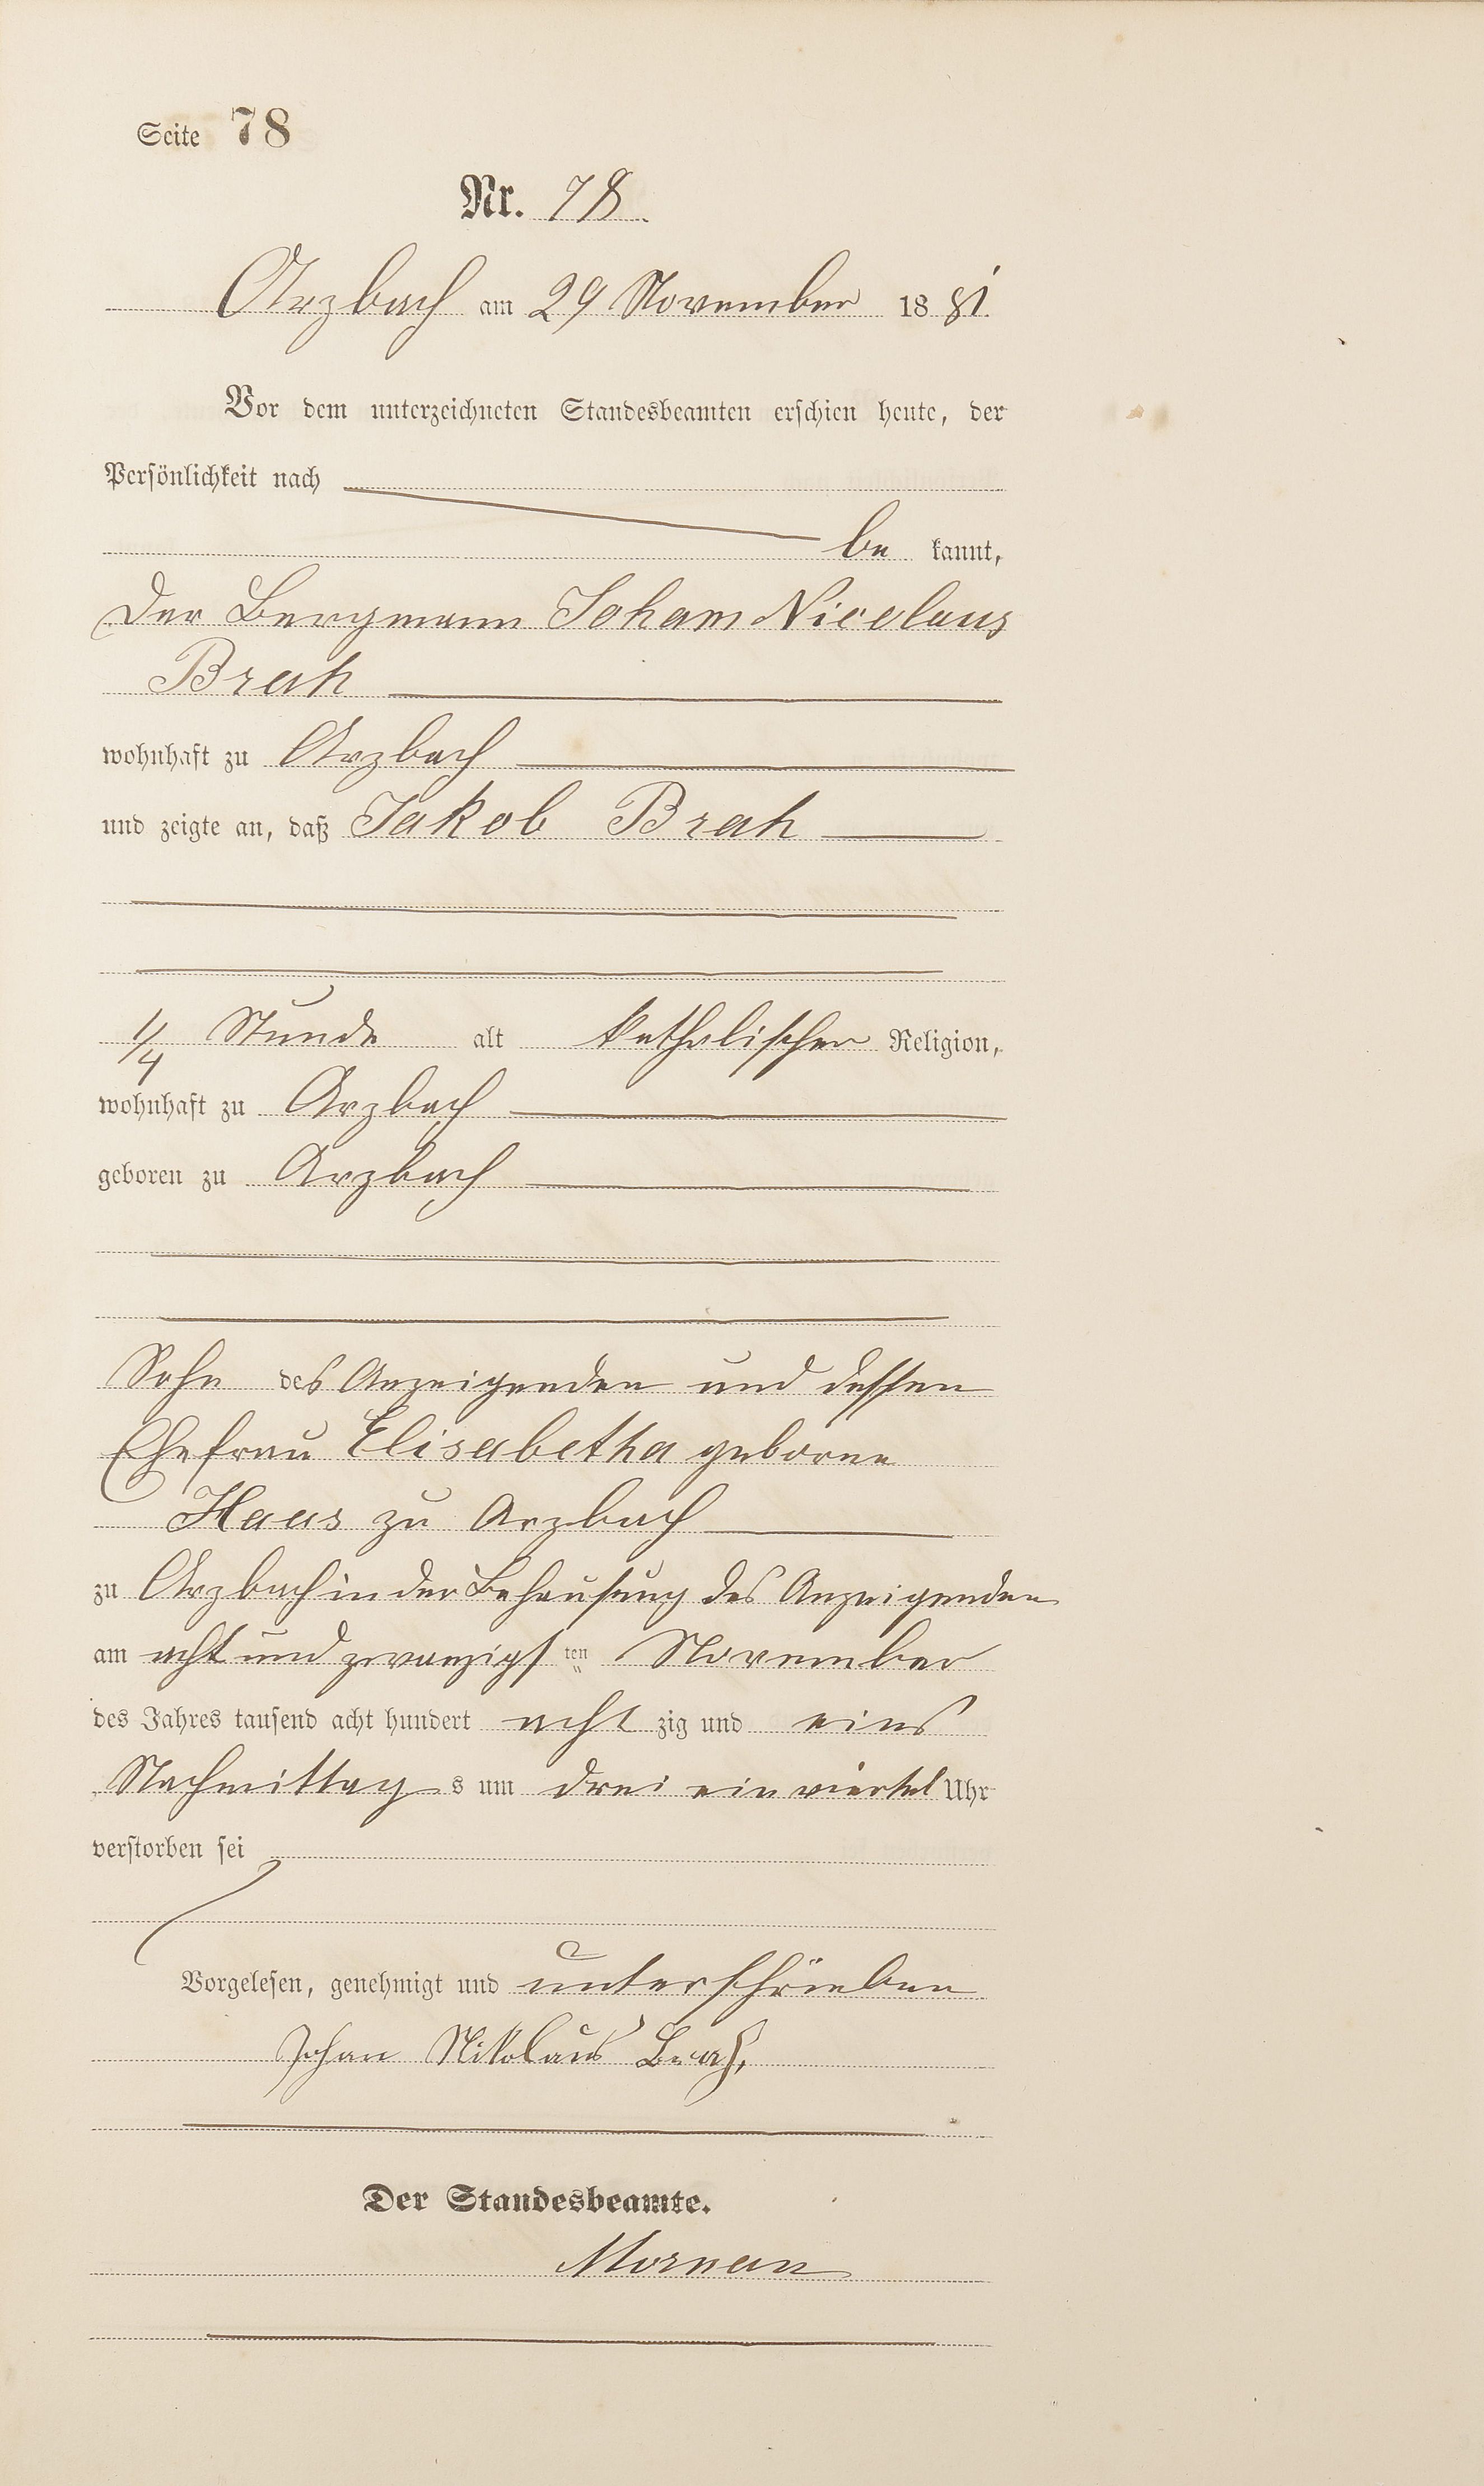 Seite 78
Nr. 78.
Arzbach am 29 November 1881.
Vor dem unterzeichneten Standesbeamten erschien heute, der
Persönlichkeit nach
be kannt,
der Bergmann Joham Nicolaus
Brah
wohnhaft zu Arzbach
und zeigte an, daß Jakob Brah
1/4 Stunde alt katholischer Religion,
wohnhaft zu Arzbach
geboren zu Arzbach
Sohn des Anzeigenden und dessen
Ehefrau Elisabetha geborne
Haas zu Arzbach
zu Arzbach in der Behausung des Anzeigenden
am acht und zwanzigsten November
des Jahres tausend acht hundert acht zig und eins
Nachmittags um drei ein viertel Uhr
verstorben sei
Vorgelesen, genehmigt und unterschrieben
Johan Nikolaus Brah,
Der Standesbeamte.